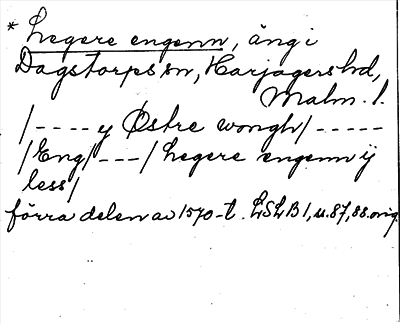 * Hegere engenn, äng i
Dagstorps sn, Harjagers hd,
Malm. l.
/---- y Østre wongh/-----
/Eng/---/ Hegere engenn ÿ
less/
förra delen av 1570-t. LSLB 1, s. 87, 88. orig.